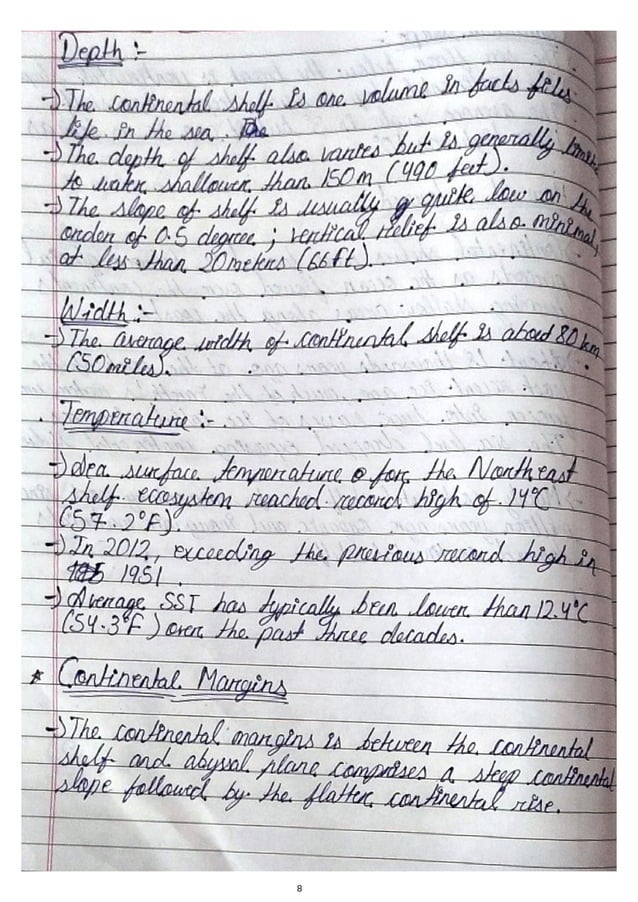 Depth :-
→ The continental shelf is one volume in facts files
life in the sea. The
→ The depth of shelf also varies but is generally
to water shallower than 150m (490 feet).
→ The slope of shelf is usually quite low on the
order of 0.5 degree ; vertical relief is also minimal,
at less than 20meters (66ft).
Width :-
→ The average width of continental shelf is about 80 km
(50miles).
Temperature :-
→ Sea surface temperature for the Northeast
shelf ecosystem reached record high of 14°C
(57.2°F).
→ In 2012, exceeding the previous record high in
1951.
→ Average SST has typically been lower than 12.4°C
(54.3°F) over the past three decades.
* Continental Margins
→ The continental margins is between the continental
shelf and abyssal plane comprises a steep continental
slope followed by the flatter continental rise.
8